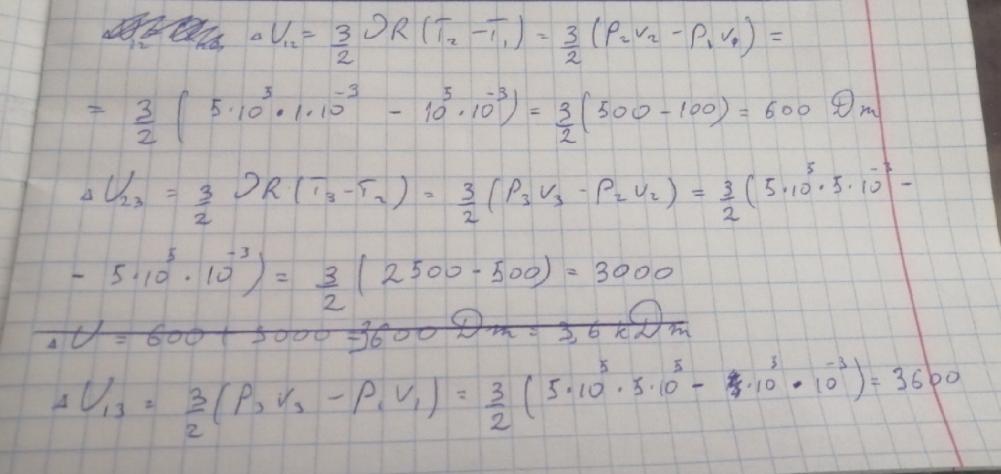 ΔU₁₂ = 3/2 νR(T₂ - T₁) = 3/2 (P₂V₂ - P₁V₁) =
= 3/2 ( 5·10⁵·1·10⁻³ - 10⁵·10⁻³) = 3/2 (500 - 100) = 600 Dm
ΔU₂₃ = 3/2 νR·(T₃ - T₂) = 3/2 (P₃V₃ - P₂V₂) = 3/2 (5·10⁵·5·10⁻³ -
- 5·10⁵·10⁻³) = 3/2 (2500 - 500) = 3000
ΔU = 600 + 3000 = 3600 Dm = 3,6 кDm
ΔU₁₃ = 3/2 (P₃V₃ - P₁V₁) = 3/2 (5·10⁵·5·10⁵ - ·10³·10⁻³) = 3600